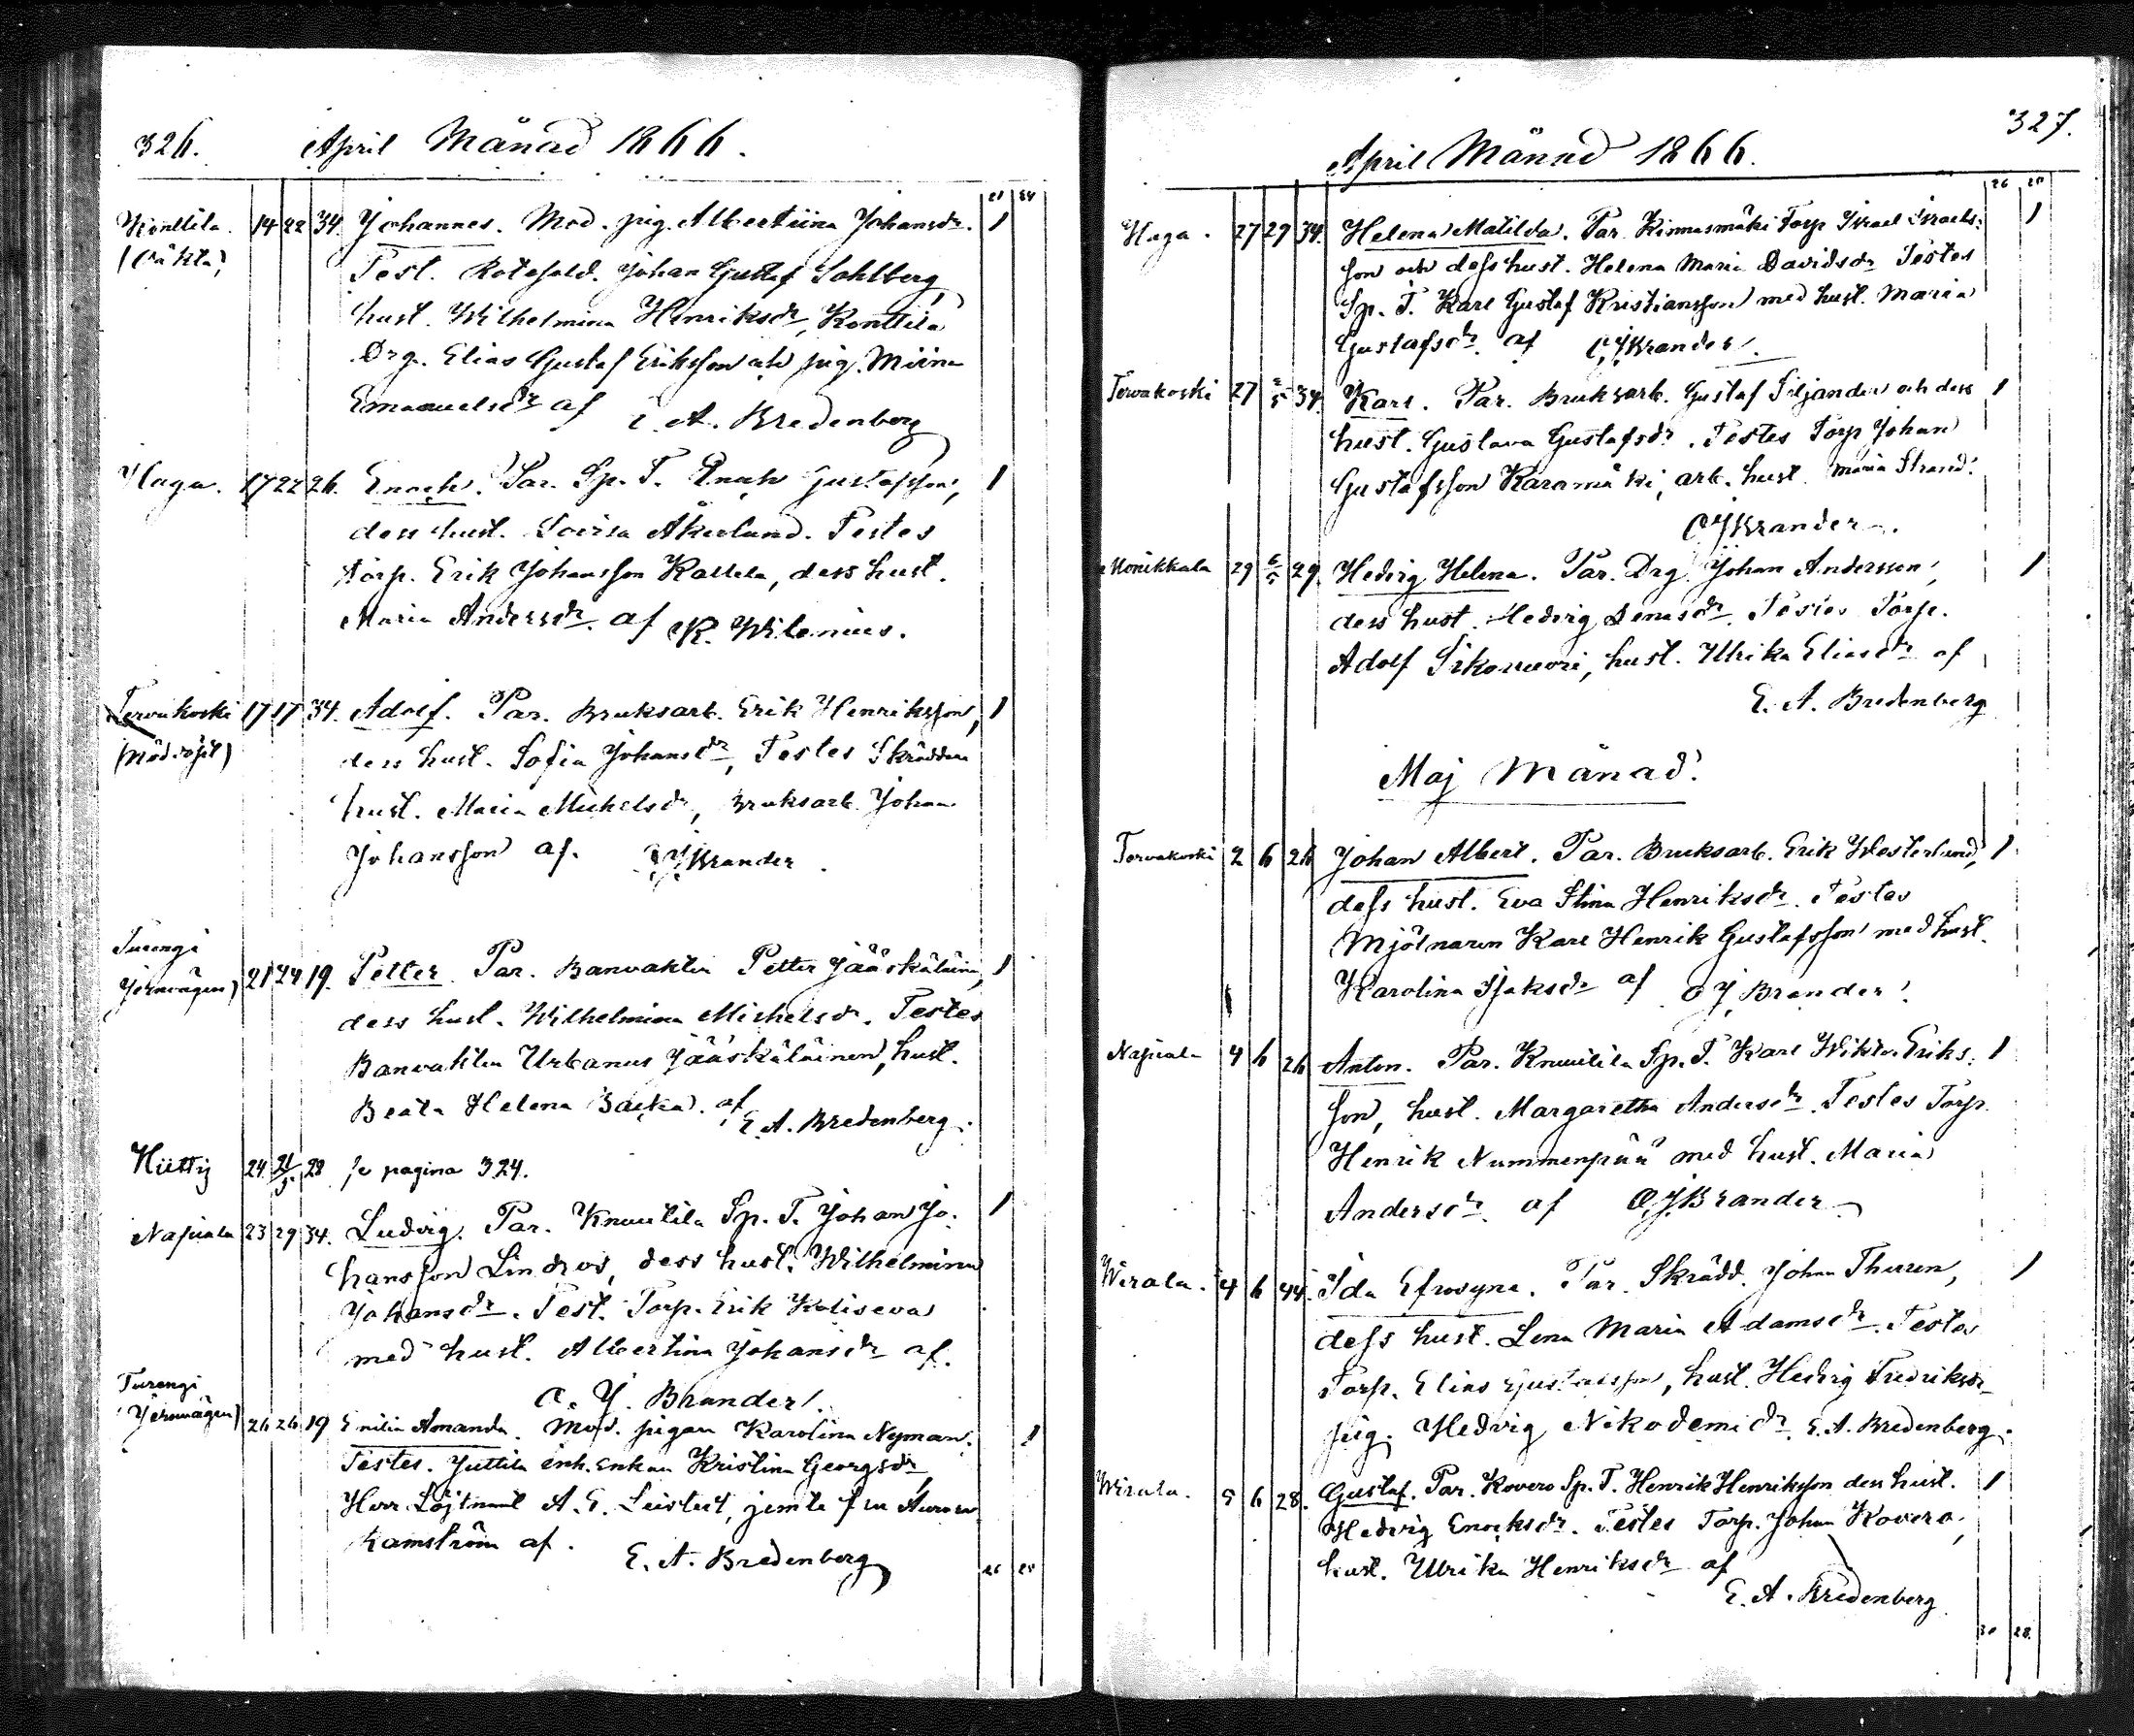 326. April Månad 1866.
21 24
Konttila. 14 22 34 Johannes. Mod. pig. Albertiina Johansdr. 1
Test. Rotesold. Johan Gustaf Sahlberg,
hust. Wilhelmina Henriksdr, Konttila
Drg. Elias Gustaf Eriksson och pig. Miina
Emanuelsdr af E. A. Bredenberg
Haga. 17 22 26. Enoch. Par. Sp. T. Enoch Gustafsson, 1
dess hust. Lovisa Åkerlund. Testes
torp. Erik Johansson Kallela, dess hust.
Maria Andersdr. af K. Wilenius.
Tervakoski 17 17 34. Adolf. Par. Bruksarb. Erik Henriksson, 1
(Nöd.döpt) dess hust. Sofia Johansdr, Testes Skräddare
hust. Maria Michelsdr, Bruksarb. Johan
Johansson af. O J Brander.
Turengi
Jernvägen) 21 24 19. Petter. Par. Banvakten Petter Jääskäläinen, 1
dess hust. Wilhelmina Michelsdr. Testes
Banvakten Urbanus Jääskäläinen, hust.
Beata Helena af E. A. Bredenberg.
Hiettij 24 21/3. 28 se pagina 324.
Napiala 23 29 34. Ludvig. Par. Knuutila Sp. T. Johan Jo- 1
hansson Lindros, dess hust. Wilhelmina
Johansdr. Test. Torp. Erik Koliseva
med hust. Albertina Johansdr af.
O. J. Brander.
Turengi
(Jernvägen) 26 26 19 Emilia Amanda. Mod. pigan Karolina Nyman. 1
Testes. Juttila inh. Enkan Kristina Georgsdr,
Herr Löjtnant A. E. jemte fru Aurora
Kamström af. E. A. Bredenberg
26 25
327.
April Månad 1866.
26 25
Haga. 27 29 34. Helena Matilda. Par. Kinnasmäki Torp Israel Israels- 1
son och dess hust. Helena Maria Davidsdr Testes
Sp. T. Karl Gustaf Kristiansson med hust. Maria
Gustafsdr. af O J Brander.
Tervakoski 27 2/5 34. Karl. Par. Bruksarb. Gustaf Siljander och dess 1
hust. Gustava Gustafsdr. Testes Torp Johan
Gustafsson Karamäki, arb. hust. Maria Strand.
O J Brander.
Monikkala 29 6/5 29. Hedvig Helena. Par. Drg. Johan Andersson, 1
dess hust. Hedvig Testes Torp.
Adolf Sikovuori, hust. Ulrika Eliasdr af
E. A. Bredenberg
Maj Månad.
Tervakoski 2 6 26 Johan Albert. Par. Bruksarb. Erik Westerlund, 1
dess hust. Eva Stina Henriksdr. Testes
Mjölnaren Karl Henrik Gustafsson med hust.
Karolina Isaksdr af O J Brander.
Napiala 4 6 26 Anton. Par. Knuutila Sp. T. Karl Wiktor Eriks- 1
son, hust. Margaretha Andersdr. Testes Torp.
Henrik Nummenpää med hust. Maria
Andersdr. af O J Brander
Wirala. 4 6 44. Ida Efrosyne. Par. Skrädd. Johan Thuren, 1
dess hust. Lena Maria Adamsdr. Testes
Torp. Elias Gustafsson, hust. Hedvig Fredriksdr
pig. Hedvig Nikodemidr. E. A. Bredenberg.
Wirala. 5 6 28. Gustaf. Par. Kovero Sp. T. Henrik Henriksson dess hust. 1
Hedvig Enoksdr. Testes Torp. Johan Kovero,
hust. Ulrika Henriksdr af
E. A. Bredenberg
30 28.